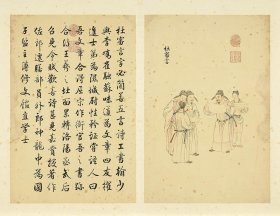 杜審言
杜審言字必簡善五言詩工書翰少
與李嶠崔融蘇味道為文章四友擢
進士第為隰城尉性矜誕嘗語人曰
吾文章合得屈宋作衙官吾之書跡
合得王羲之北面累轉洛陽丞武后
召見令賦歡喜詩甚嘉賞授著作
佐郎遷膳部員外郎神龍中為國
子監主簿修文館直學士